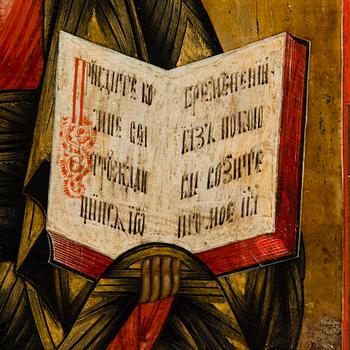 Прїидите ко
мне вси
трꙋждаю
щиисѧ
бремененїи
азъ покою
вы возмите
иго мое на